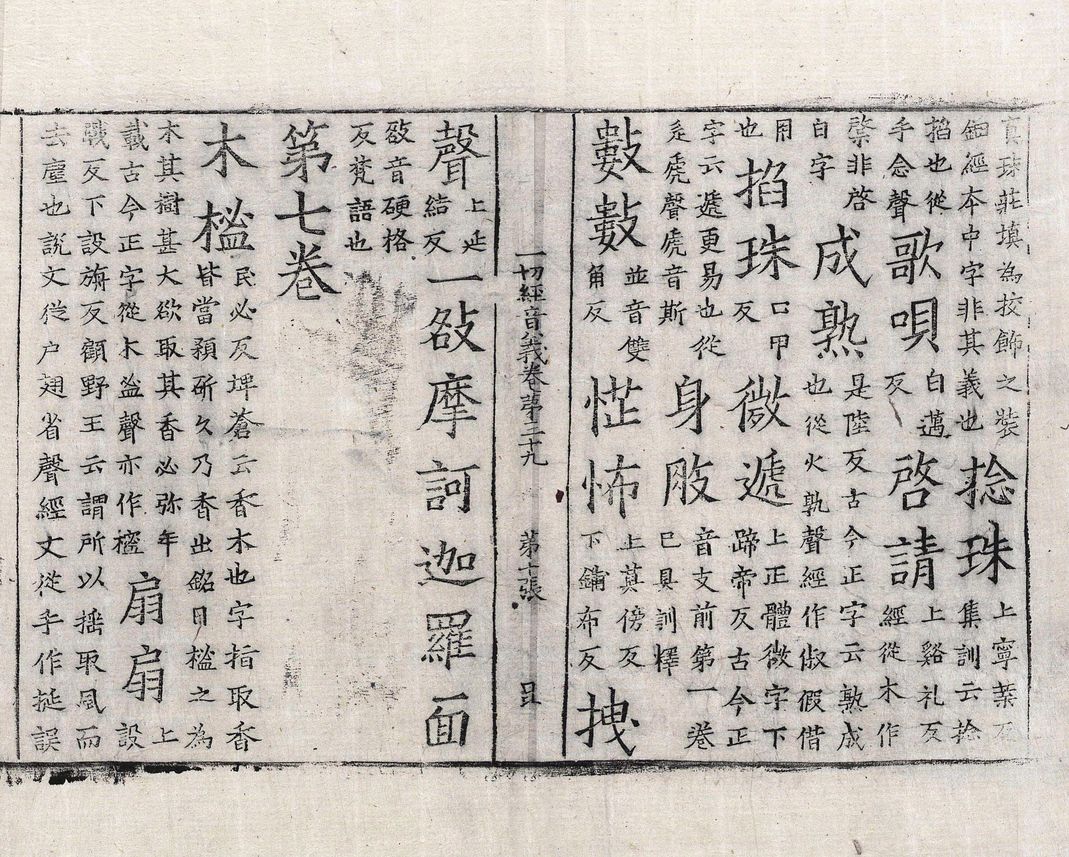 真珠莊填為挍飾之裝
鈿經本中字非其義也
捻珠
上寧葉反
集訓云捻
掐也從
手念聲
歌唄
白邁
反
啓請
上谿礼反
經從木作
棨非啓
白字
成熟
是陸反古今正字云熟成
也從火孰聲經作俶假借
用
也
掐珠
口甲
反
微遞
上正體微字下
蹄帝反古今正
字云遞更易也從
辵虒聲虒音斯
身肢
音支前第一卷
已具訓釋
數數
並音雙
角反
恾怖
上莫傍反
下鋪布反
拽
一切經音義卷第三十九 第十張
聲
上延
結反
一摩訶迦羅面
音硬格
反梵語也
第七卷
木榓
民必反埤蒼云香木也字指取香
皆當預斫久乃香出銘曰榓之為
木其樹甚大欲取其香必弥年
載古今正字從木聲亦作樒
扇扇
上
設
戰反下設旃反顧野王云謂所以揺取風而
去塵也說文從户翅省聲經文從手作挻誤